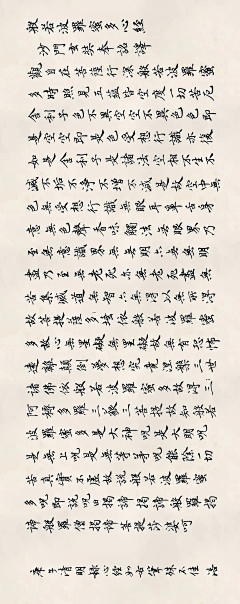 般若波羅蜜多心經
沙門玄奘奉詔譯
觀自在菩薩行深般若波羅蜜
多時照見五蘊皆空度一切苦厄
舍利子色不異空空不異色色即
是空空即是色受想行識亦復
如是舍利子是諸法空相不生不
滅不垢不淨不增不減是故空中無
色無受想行識無眼耳鼻舌身
意無色聲香味觸法無眼界乃
至無意識界無無明亦無無明
盡乃至無老死亦無老死盡無
苦集滅道無智亦無得以無所得
故菩提薩埵依般若波羅蜜
多故心無罣礙無罣礙故無有恐怖
遠離顛倒夢想究竟涅槃三世
諸佛依般若波羅蜜多故得
阿耨多羅三藐三菩提故知般若
波羅蜜多是大神咒是大明咒
是無上咒是無等等咒能除一切
苦真實不虛故說般若波羅蜜
多咒即說咒曰揭諦揭諦般羅揭
諦般羅僧揭諦菩提莎婆呵
清明 心經